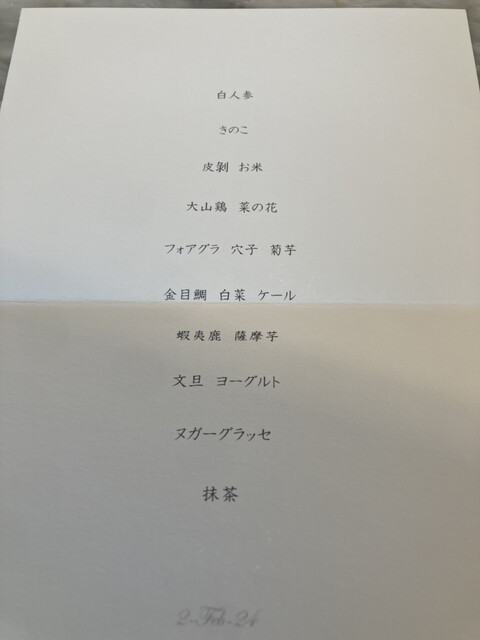 白人参
きのこ
皮剝 お米
大山鶏 菜の花
フォアグラ 穴子 菊芋
金目鯛 白菜 ケール
蝦夷鹿 薩摩芋
文旦 ヨーグルト
ヌガーグラッセ
抹茶
2-Feb-24